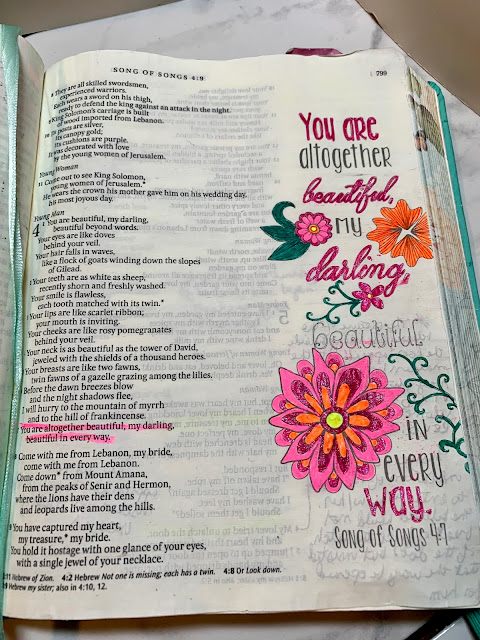 SONG OF SONGS 4:9
799
8 They are all skilled swordsmen,
experienced warriors.
Each wears a sword on his thigh,
ready to defend the king against an attack in the night.
9 King Solomon's carriage is built
of wood imported from Lebanon.
10 Its posts are silver,
its canopy gold;
its cushions are purple.
It was decorated with love
by the young women of Jerusalem.
Young Woman
11 Come out to see King Solomon,
young women of Jerusalem.*
He wears the crown his mother gave him on his wedding day,
his most joyous day.
Young Man
4 You are beautiful, my darling,
beautiful beyond words.
Your eyes are like doves
behind your veil.
Your hair falls in waves,
like a flock of goats winding down the slopes
of Gilead.
2 Your teeth are as white as sheep,
recently shorn and freshly washed.
Your smile is flawless,
each tooth matched with its twin.*
3 Your lips are like scarlet ribbon;
your mouth is inviting.
Your cheeks are like rosy pomegranates
behind your veil.
Your neck is as beautiful as the tower of David,
jeweled with the shields of a thousand heroes.
Your breasts are like two fawns,
twin fawns of a gazelle grazing among the lilies.
Before the dawn breezes blow
and the night shadows flee,
I will hurry to the mountain of myrrh
and to the hill of frankincense.
You are altogether beautiful, my darling,
beautiful in every way.
8 Come with me from Lebanon, my bride,
come with me from Lebanon.
Come down* from Mount Amana,
from the peaks of Senir and Hermon,
where the lions have their dens
and leopards live among the hills.
9 You have captured my heart,
my treasure,* my bride.
You hold it hostage with one glance of your eyes,
with a single jewel of your necklace.
3:11 Hebrew of Zion. 4:2 Hebrew Not one is missing; each has a twin. 4:8 Or Look down.
4:9 Hebrew my sister; also in 4:10, 12.
You are
altogether
beautiful,
my
darling,
beautiful
in
every
way.
Song of Songs 4:7